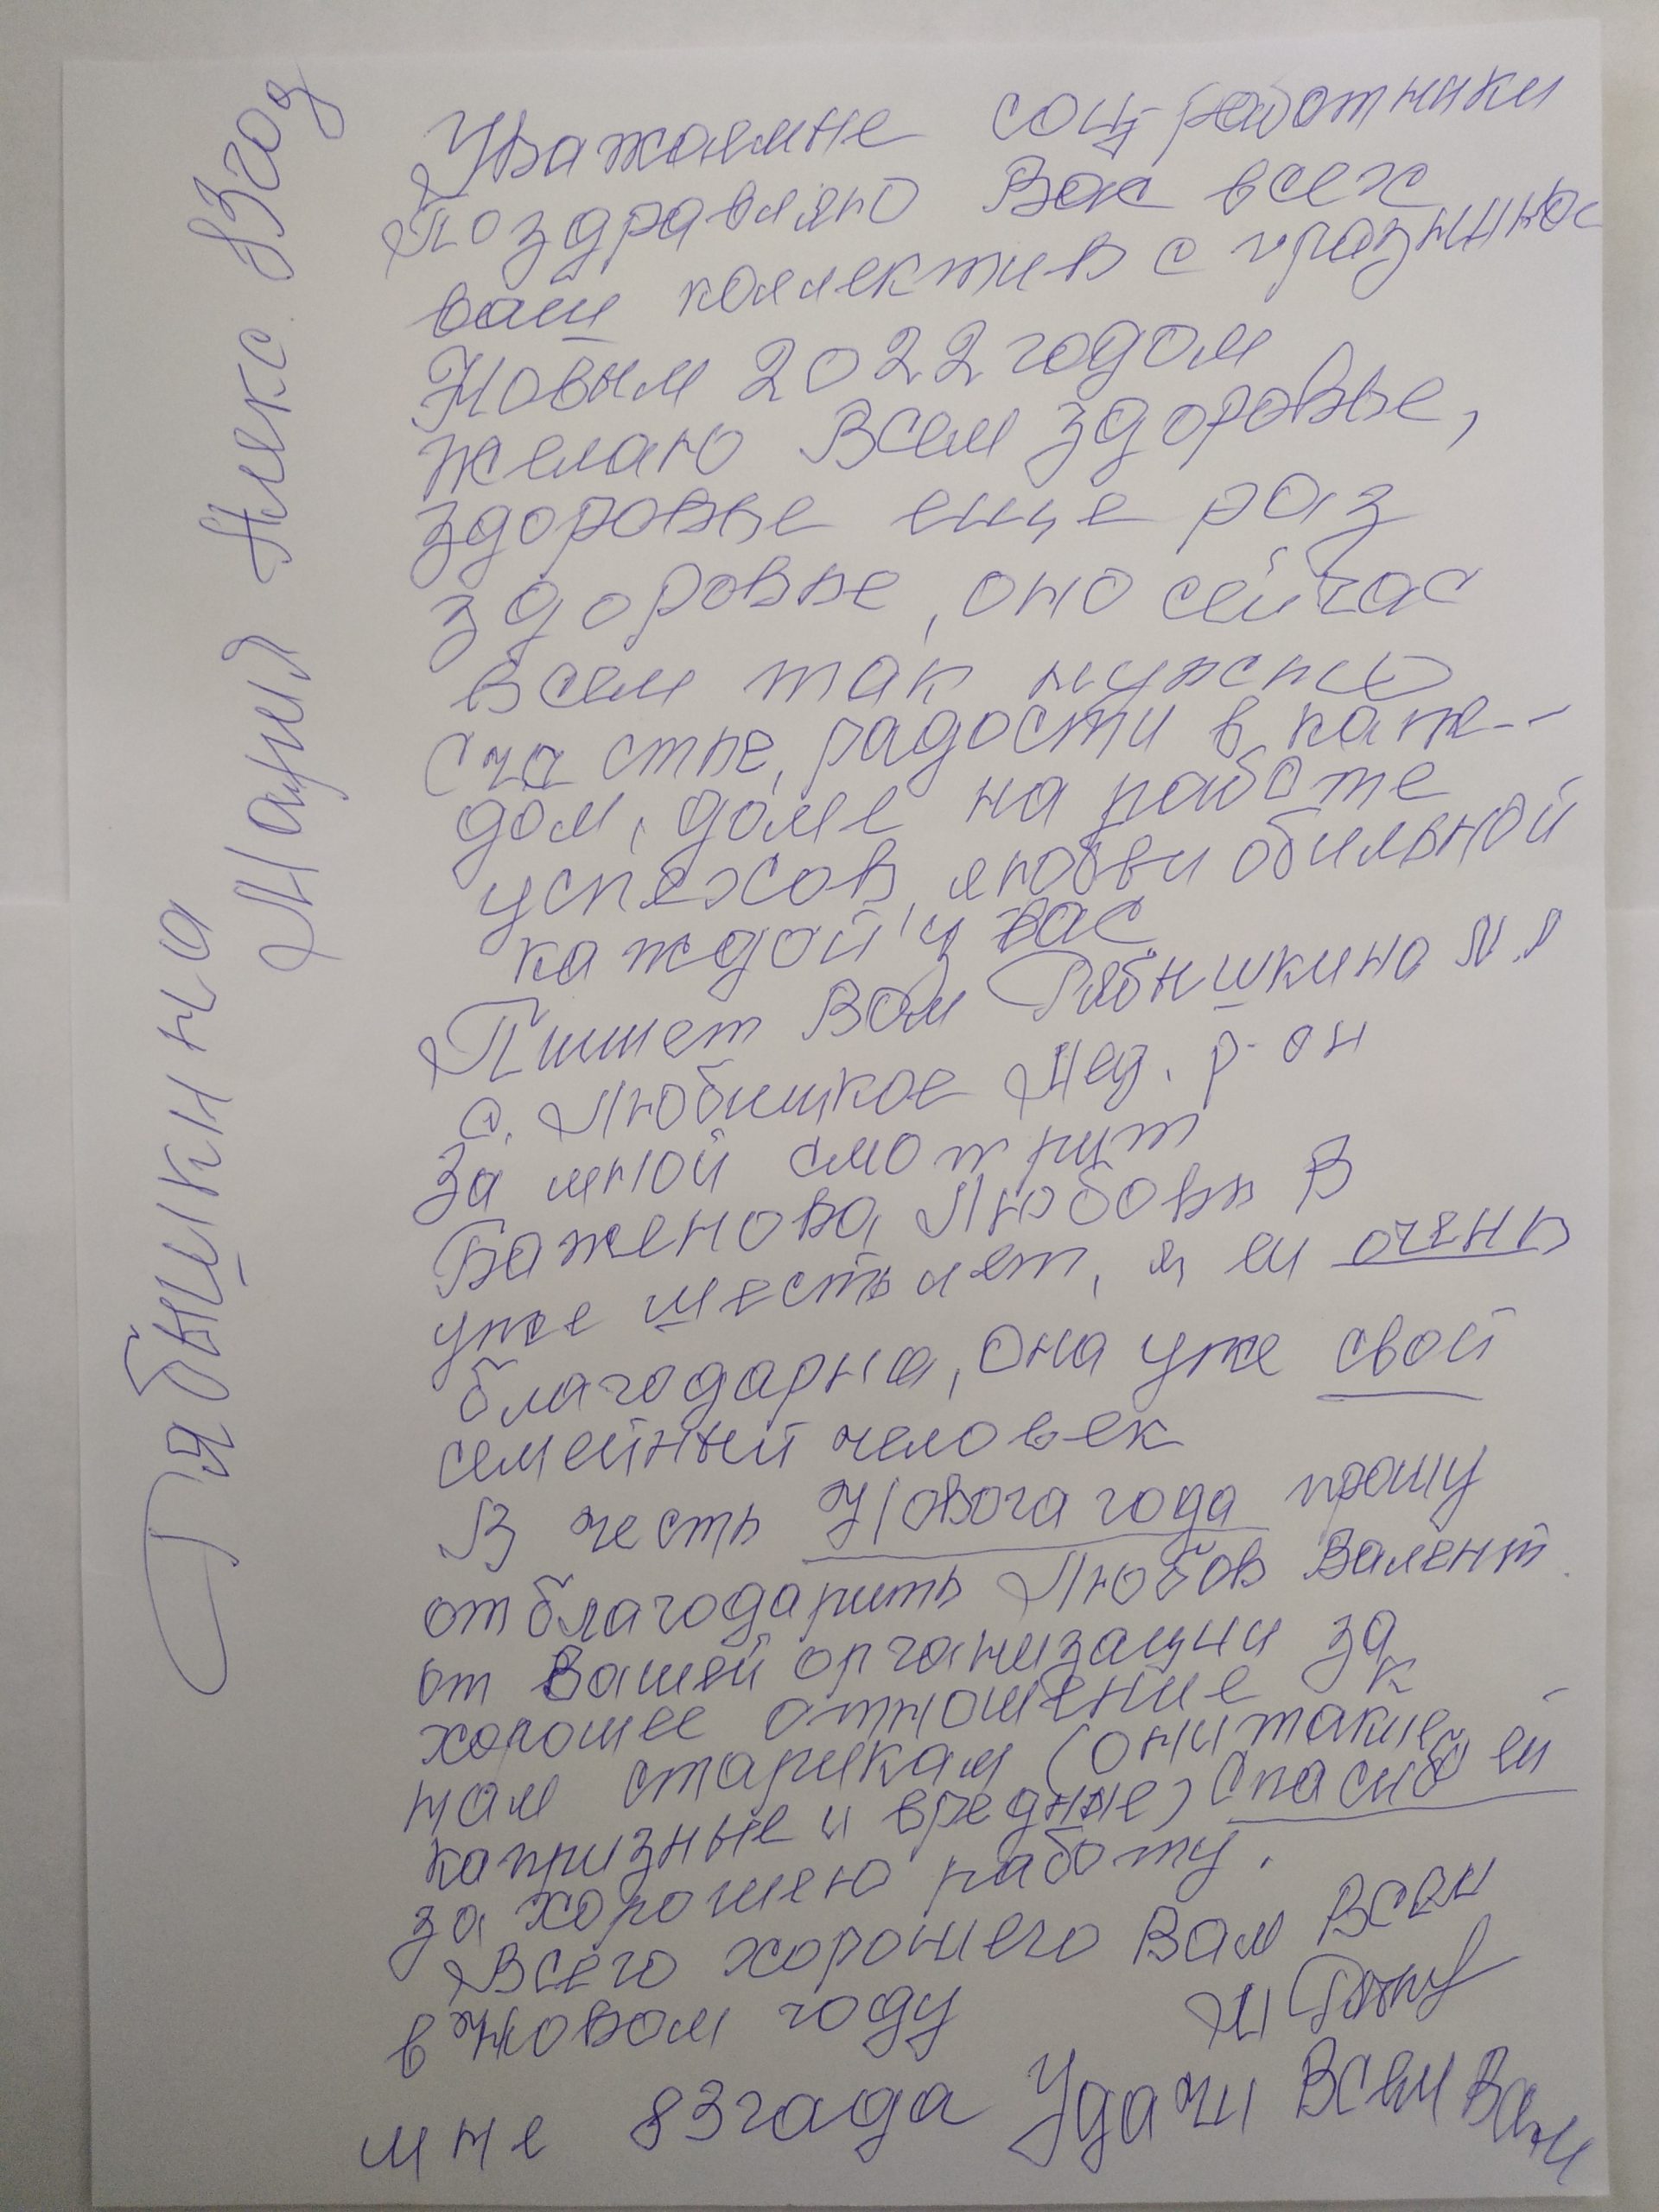 Уважаемые соц-работники
Поздравляю Вас всех
ваш коллектив с празник
Новым 2022 годом
желаю Всем здоровье,
здоровье еще раз
здоровье, оно сейчас
всем так нужно
счастье, радости в каж--
дом, доме на работе
успехов, любви обильной
каждой у вас
Пишет Вам Рябышкина М.А
с. Любицкое Мед. р-он
За мной смотрит
Баженова Любовь В
уже шесть лет, я ей очень
благодарна, она уже свой
семейный человек
В честь Новога года прошу
отблагодарить Любов Валент.
от Вашей организации за
хорошее отношение к
нам старикам (они такие
капризные и вредные) Спасибо ей
за хорошею работу.
Всего хорошего Вам Всем
в Новом году
мне 83 года Удачи Всем Вам
Рябышкина
Мария Алекс. 83 год